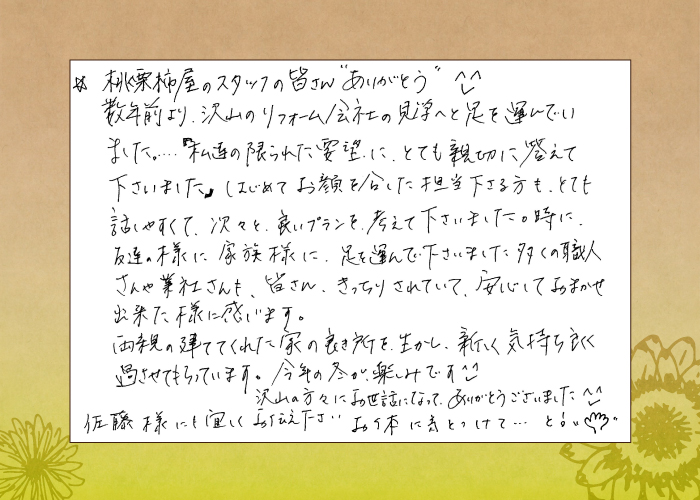 ☆ 桃栗柿屋のスタッフの皆さん"ありがとう"
数年前より、沢山のリフォーム会社の見学へと足を運んでい
ました。…『私達の限られた要望に、とても親切に答えて
下さいました』はじめてお顔を合した担当下さる方も、とても
話しやすくて、次々と、良いプランを、考えて下さいました。時に、
友達の様に家族様に、足を運んで下さいました 多くの職人
さんや業社さんも、皆さん、きっちりされていて、安心しておまかせ
出来た様に感います。
両親の建ててくれた家の良き所を、生かし、新しく気持ち良く
過させてもらっています。今年の冬が、楽しみです
沢山の方々にお世話になって、ありがとうございました
佐藤様にも宜しくお伝え下さい お体に気をつけて… と!